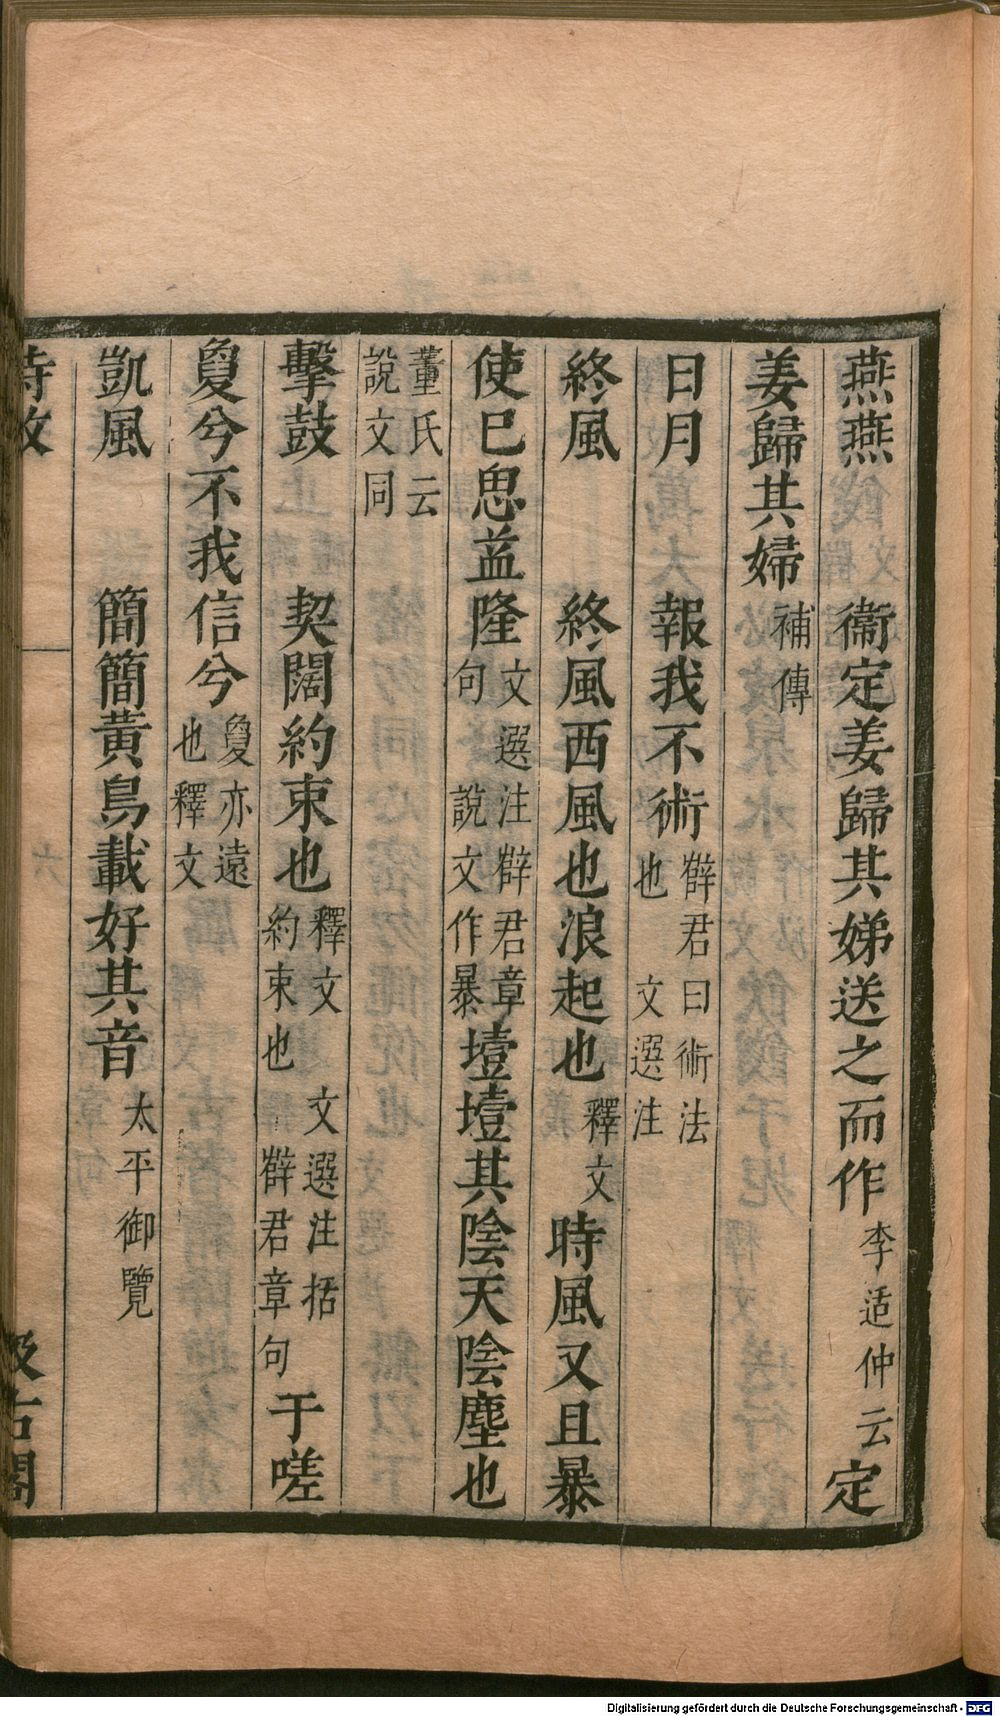 燕燕　衞定姜歸其娣送之而作李适仲云定
姜歸其婦補傳
日月　報我不術薛君曰術法也　文選注
終風　終風西風也浪起也釋文　時風又且暴
使已思益隆文選注薛君章句　說文作暴壇壇其陰天陰塵也
董氏云說文同
擊鼓　契闊約束也釋文　約束也　文選注括　薛君章句　于嗟
敻兮不我信兮敻亦遠也釋文
凱風　簡簡黃鳥載好其音太平御覽
詩攷
汲古閣
Digitalisierung gefördert durch die Deutsche Forschungsgemeinschaft - DFG